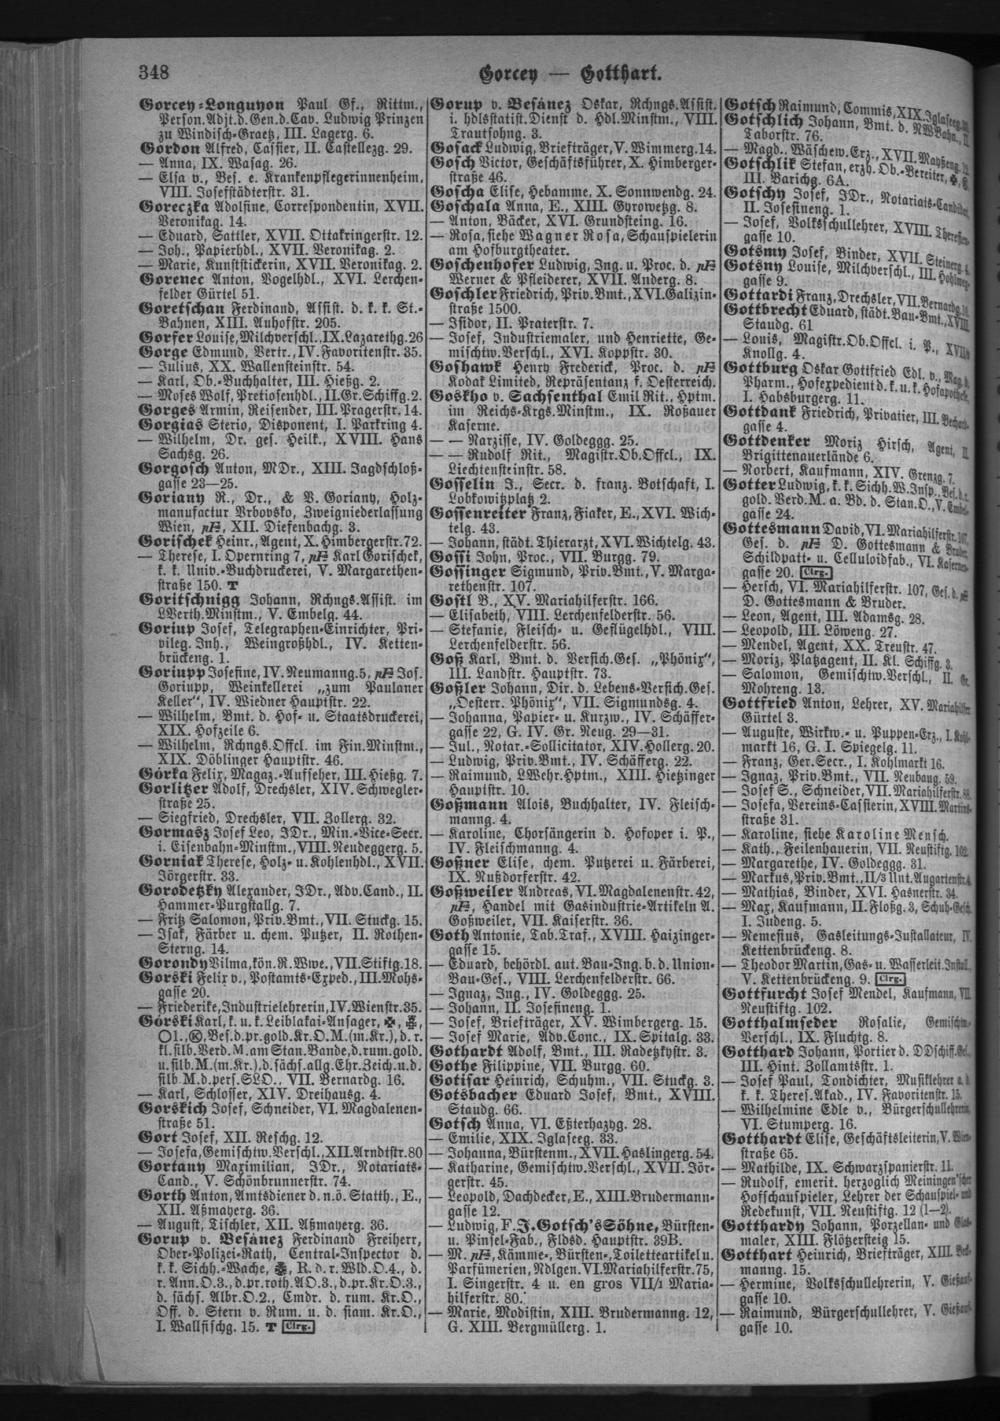 348
Gorcey — Gotthart.
Gorcey-Longuyon Paul Gf., Rittm.,
Person.Adjt.d.Gen.d.Cav. Ludwig Prinzen
zu Windisch-Graetz, III. Lagerg. 6.
Gordon Alfred, Cassier, II. Castellezg. 29.
— Anna, IX. Wasag. 26.
— Elsa v., Bes. e. Krankenpflegerinnenheim,
VIII. Josefstädterstr. 31.
Goreczka Adolfine, Correspondentin, XVII.
Veronikag. 14.
— Eduard, Sattler, XVII. Ottakringerstr. 12.
— Joh., Papierhdl., XVII. Veronikag. 2.
— Marie, Kunststickerin, XVII. Veronikag. 2.
Gorenec Anton, Vogelhdl., XVI. Lerchen-
felder Gürtel 51.
Goretschan Ferdinand, Assist. d. k. k. St.-
Bahnen, XIII. Auhofstr. 205.
Gorfer Louise, Milchverschl., IX. Lazarethg. 26
Gorge Edmund, Vertr., IV. Favoritenstr. 35.
— Julius, XX. Wallensteinstr. 54.
— Karl, Ob.-Buchhalter, III. Hießg. 2.
— Moses Wolf, Pretiosenhdl., II. Gr. Schiffg. 2.
Gorges Armin, Reisender, III. Pragerstr. 14.
Gorgias Sterio, Disponent, I. Parkring 4.
— Wilhelm, Dr. ges. Heilk., XVIII. Hans
Sachsg. 26.
Gorgosch Anton, MDr., XIII. Jagdschloß-
gasse 23—25.
Goriany R., Dr., & V. Goriany, Holz-
manufactur Vrbovsko, Zweigniederlassung
Wien, XII. Diefenbachg. 3.
Gorischek Heinr., Agent, X. Himbergerstr. 72.
— Therese, I. Opernring 7, Karl Gorischek,
k. k. Univ.-Buchdruckerei, V. Margarethen-
straße 150. T
Goritschnigg Johann, Rchngs.Assist. im
LVerth.Minstm., V. Embelg. 44.
Goriup Josef, Telegraphen-Einrichter, Pri-
vileg. Inh., Weingroßhdl., IV. Ketten-
brückeng. 1.
Goriupp Josefine, IV. Neumanng. 5, Jos.
Goriupp, Weinkellerei „zum Paulaner
Keller“, IV. Wiedner Hauptstr. 22.
— Wilhelm, Bmt. d. Hof- u. Staatsdruckerei,
XIX. Hofzeile 6.
— Wilhelm, Rchngs.Offcl. im Fin.Minstm.,
XIX. Döblinger Hauptstr. 46.
Górka Felix, Magaz.-Aufseher, III. Hießg. 7.
Gorlitzer Adolf, Drechsler, XIV. Schwegler-
straße 25.
— Siegfried, Drechsler, VII. Zollerg. 32.
Gormasz Josef Leo, JDr., Min.-Vice-Secr.
i. Eisenbahn-Minstm., VIII. Neudeggerg. 5.
Gorniak Therese, Holz- u. Kohlenhdl., XVII.
Jörgerstr. 33.
Gorodetzky Alexander, JDr., Adv.Cand., II.
Hammer-Purgstallg. 7.
— Fritz Salomon, Priv.Bmt., VII. Stuckg. 15.
— Isak, Färber u. chem. Putzer, II. Rothen-
Sterng. 14.
Gorondy Vilma, kön. R. Wwe., VII. Stiftg. 18.
Gorski Felix v., Postamts-Exped., III. Mohs-
gasse 20.
— Friederike, Industrielehrerin, IV. Wienstr. 35.
Górski Karl, k. u. k. Leiblakai-Ansager,
O1., Bes.d.pr.gold.Kr.O.M.(m.Kr.), d. r.
kl.silb.Verd.M.am Stan.Bande, d.rum.gold.
u.silb.M.(m.Kr.), d.sächs.allg.Ehr.Zeich.u.d.
silb.M.d.pers.SLO., VII. Bernardg. 16.
— Karl, Schlosser, XIV. Dreihausg. 4.
Gorskich Josef, Schneider, VI. Magdalenen-
straße 51.
Gort Josef, XII. Reschg. 12.
— Josefa, Gemischtw.Verschl., XII. Arndtstr. 80
Gortany Maximilian, JDr., Notariats-
Cand., V. Schönbrunnerstr. 74.
Gorth Anton, Amtsdiener d. n.ö. Statth., E.,
XII. Aßmayerg. 36.
— August, Tischler, XII. Aßmayerg. 36.
Gorup v. Besánez Ferdinand Freiherr,
Ober-Polizei-Rath, Central-Inspector d.
k. k. Sichh.-Wache, R. d. r. Wld.O.4., d.
r. Ann.O.3., d.pr.roth.AO.3., d.pr.Kr.O.3.,
d. sächs. Albr.O.2., Cmdr. d. rum. Kr.O.,
Off. d. Stern v. Rum. u. d. siam. Kr.O.,
I. Wallfischg. 15. T Clrg.
Gorup v. Besánez Oskar, Rchngs.Assist.
i. hdlsstatist.Dienst d. Hdl.Minstm., VIII.
Trautsohng. 3.
Gosack Ludwig, Briefträger, V. Wimmerg. 14.
Gosch Victor, Geschäftsführer, X. Himberger-
straße 46.
Goscha Elise, Hebamme, X. Sonnwendg. 24.
Goschala Anna, E., XIII. Gyrowetzg. 8.
— Anton, Bäcker, XVI. Grundsteing. 16.
— Rosa, siehe Wagner Rosa, Schauspielerin
am Hofburgtheater.
Goschenhofer Ludwig, Ing. u. Proc. d.
Werner & Pfleiderer, XVII. Anderg. 8.
Goschler Friedrich, Priv.Bmt., XVI. Galizin-
straße 1500.
— Isidor, II. Praterstr. 7.
— Josef, Industriemaler, und Henriette, Ge-
mischtw.Verschl., XVI. Koppstr. 30.
Goshawk Henry Frederick, Proc. d.
Kodak Limited, Repräsentanz f. Oesterreich.
Goskho v. Sachsenthal Emil Rit., Hptm.
im Reichs-Krgs.Minstm., IX. Roßauer
Kaserne.
— — Narzisse, IV. Goldeggg. 25.
— — Rudolf Rit., Magistr.Ob.Offcl., IX.
Liechtensteinstr. 58.
Gosselin J., Secr. d. franz. Botschaft, I.
Lobkowitzplatz 2.
Gossenreiter Franz, Fiaker, E., XVI. Wich-
telg. 43.
— Johann, städt. Thierarzt, XVI. Wichtelg. 43.
Gossi John, Proc., VII. Burgg. 79.
Gossinger Sigmund, Priv.Bmt., V. Marga-
rethenstr. 107.
Gostl B., XV. Mariahilferstr. 166.
— Elisabeth, VIII. Lerchenfelderstr. 56.
— Stefanie, Fleisch- u. Geflügelhdl., VIII.
Lerchenfelderstr. 56.
Goß Karl, Bmt. d. Versich.Ges. „Phönix“,
III. Landstr. Hauptstr. 73.
Goßler Johann, Dir. d. Lebens-Versich.Ges.
„Oesterr. Phönix“, VII. Sigmundsg. 4.
— Johanna, Papier- u. Kurzw., IV. Schäffer-
gasse 22, G. IV. Gr. Neug. 29—31.
— Jul., Notar.-Sollicitator, XIV. Hollerg. 20.
— Ludwig, Priv.Bmt., IV. Schäfferg. 22.
— Raimund, LWehr.Hptm., XIII. Hietzinger
Hauptstr. 10.
Goßmann Alois, Buchhalter, IV. Fleisch-
manng. 4.
— Karoline, Chorsängerin d. Hofoper i. P.,
IV. Fleischmanng. 4.
Goßner Elise, chem. Putzerei u. Färberei,
IX. Nußdorferstr. 42.
Goßweiler Andreas, VI. Magdalenenstr. 42,
Handel mit Gasindustrie-Artikeln A.
Goßweiler, VII. Kaiserstr. 36.
Goth Antonie, Tab.Traf., XVIII. Haizinger-
gasse 15.
— Eduard, behördl. aut. Bau-Ing. b. d. Union-
Bau-Ges., VIII. Lerchenfelderstr. 66.
— Ignaz, Ing., IV. Goldeggg. 25.
— Johann, II. Josefineng. 1.
— Josef, Briefträger, XV. Wimbergerg. 15.
— Josef Marie, Adv.Conc., IX. Spitalg. 33.
Gothardt Adolf, Bmt., III. Radetzkystr. 3.
Gothe Filippine, VII. Burgg. 60.
Gotisar Heinrich, Schuhm., VII. Stuckg. 3.
Gotsbacher Eduard Josef, Bmt., XVIII.
Staudg. 66.
Gotsch Anna, VI. Eßterhazyg. 28.
— Emilie, XIX. Iglaseeg. 33.
— Johanna, Bürstenm., XVII. Haslingerg. 54.
— Katharine, Gemischtw.Verschl., XVII. Jör-
gerstr. 45.
— Leopold, Dachdecker, E., XIII. Brudermann-
gasse 12.
— Ludwig, F. J. Gotsch's Söhne, Bürsten-
u. Pinsel-Fab., Fldsd. Hauptstr. 39B.
— M. Kämme-, Bürsten-, Toiletteartikel u.
Parfümerien, Ndlgen. VI. Mariahilferstr. 75,
I. Singerstr. 4 u. en gros VII/1 Maria-
hilferstr. 80.
— Marie, Modistin, XIII. Brudermanng. 12,
G. XIII. Bergmüllerg. 1.
Gotsch Raimund, Commis, XIX. Iglaseeg.
Gotschlich Johann, Bmt. d. NWBahn, II.
Taborstr. 76.
— Magd., Wäschew.Erz., XVII.
Gotschlik Stefan, erzh. Ob.-Bereiter,
III. Barichg. 6A.
Gotschy Josef, JDr., Notariats-Candidat,
II. Josefineng. 1.
— Josef, Volksschullehrer, XVIII. Theresien-
gasse 10.
Gotsmy Josef, Binder, XVII. Steinerg.
Gotsny Louise, Milchverschl., III. Hohlweg-
gasse 9.
Gottardi Franz, Drechsler, VII. Bernardg.
Gottbrecht Eduard, städt. Bau-Bmt., XVIII.
Staudg. 61
— Louis, Magistr.Ob.Offcl. i. P.,
Knollg. 4.
Gottburg Oskar Gottfried Edl. v., Mag. d.
Pharm., Hofexpedient d. k. u. k. Hofapotheke,
I. Habsburgerg. 11.
Gottdank Friedrich, Privatier, III. Bechard-
gasse 4.
Gottdenker Moriz Hirsch, Agent, II.
Brigittenauerlände 6.
— Norbert, Kaufmann, XIV. Grenzg. 7.
Gotter Ludwig, k. k. Sichh.W.Insp., Bes. d. r.
gold. Verd.M. a. Bd. d. Stan.O., V. Embel-
gasse 24.
Gottesmann David, VI. Mariahilferstr. 107,
Ges. d. D. Gottesmann & Bruder,
Schildpatt- u. Celluloidfab., VI. Kasernen-
gasse 20. Clrg.
— Hersch, VI. Mariahilferstr. 107, Ges. d.
D. Gottesmann & Bruder.
— Leon, Agent, III. Adamsg. 28.
— Leopold, III. Löweng. 27.
— Mendel, Agent, XX. Treustr. 47.
— Moriz, Platzagent, II. Kl. Schiffg. 3.
— Salomon, Gemischtw.Verschl., II. Gr.
Mohreng. 13.
Gottfried Anton, Lehrer, XV. Mariahilfer
Gürtel 3.
— Auguste, Wirkw.- u. Puppen-Erz., I. Kohl-
markt 16, G. I. Spiegelg. 11.
— Franz, Ger.Secr., I. Kohlmarkt 16.
— Ignaz, Priv.Bmt., VII. Neubaug. 59.
— Josef S., Schneider, VII. Mariahilferstr.
— Josefa, Vereins-Cassierin, XVIII. Martins-
straße 31.
— Karoline, siehe Karoline Mensch.
— Kath., Feilenhauerin, VII. Neustiftg. 102.
— Margarethe, IV. Goldeggg. 31.
— Markus, Priv.Bmt., II/3 Unt. Augartenstr.
— Mathias, Binder, XVI. Hasnerstr. 34.
— Max, Kaufmann, II. Floßg. 3, Schuh-Gesch.
I. Judeng. 5.
— Nemesius, Gasleitungs-Installateur, IV.
Kettenbrückeng. 8.
— Theodor Martin, Gas- u. Wasserleit.Install.
V. Kettenbrückeng. 9. Clrg.
Gottfurcht Josef Mendel, Kaufmann, VII.
Neustiftg. 102.
Gotthalmseder Rosalie, Gemischtw.-
Verschl., IX. Fluchtg. 8.
Gotthard Johann, Portier d. DDschiff.Ges.,
III. Hint. Zollamtsstr. 1.
— Josef Paul, Tondichter, Musiklehrer a. d.
k. k. Theres.Akad., IV. Favoritenstr. 15.
— Wilhelmine Edle v., Bürgerschullehrerin,
VI. Stumperg. 16.
Gotthardt Elise, Geschäftsleiterin, V. Wien-
straße 65.
— Mathilde, IX. Schwarzspanierstr. 11.
— Rudolf, emerit. herzoglich Meiningen'scher
Hofschauspieler, Lehrer der Schauspiel- und
Redekunst, VII. Neustiftg. 12 (1—2).
Gotthardy Johann, Porzellan- und Glas-
maler, XIII. Flötzersteig 15.
Gotthart Heinrich, Briefträger, XIII. Beck-
manng. 15.
— Hermine, Volksschullehrerin, V. Gießauf-
gasse 10.
— Raimund, Bürgerschullehrer, V. Gießauf-
gasse 10.